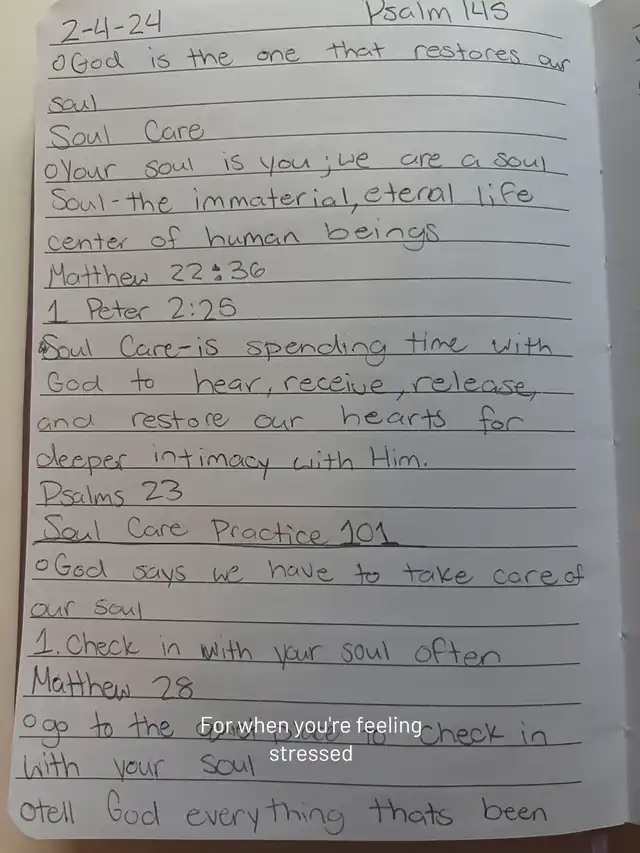 2-4-24 Psalm 145
oGod is the one that restores our
soul
Soul Care
oYour soul is you; we are a soul
Soul-the immaterial, eteral life
center of human beings
Matthew 22:36
1 Peter 2:25
Soul Care-is spending time with
God to hear, receive, release,
and restore our hearts for
deeper intimacy with Him.
Psalms 23
Soul Care Practice 101
oGod says we have to take care of
our soul
1. Check in with your soul often
Matthew 28
ogo to the to check in
For when you're feeling
stressed
with your soul
otell God everything thats been